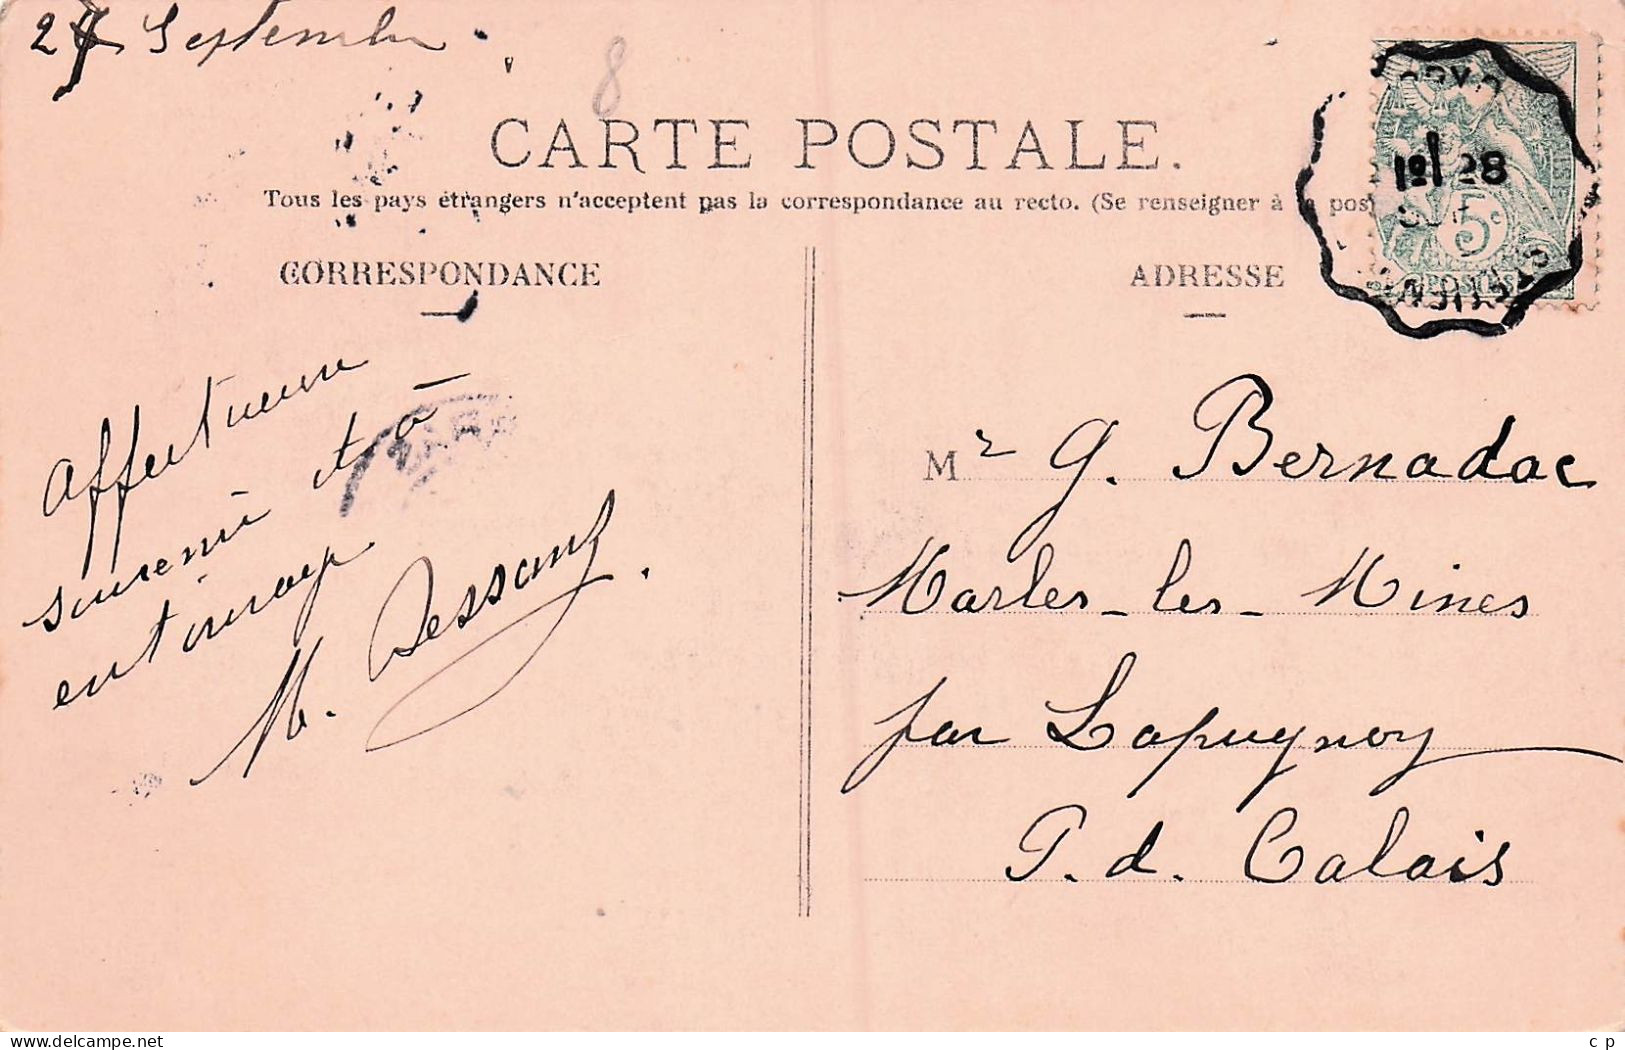 Septembre
8
CARTE POSTALE.
Tous les pays étrangers n'acceptent pas la correspondance au recto. (Se renseigner à la pos
CORRESPONDANCE
ADRESSE
28
5c
POSTES
Affectueux
souvenir et à
entourage
M. Dessanz.
Mr G. Bernadac
Marles-les-Mines
par Lapugnoy
P. d. Calais
www.delcampe.net
c p